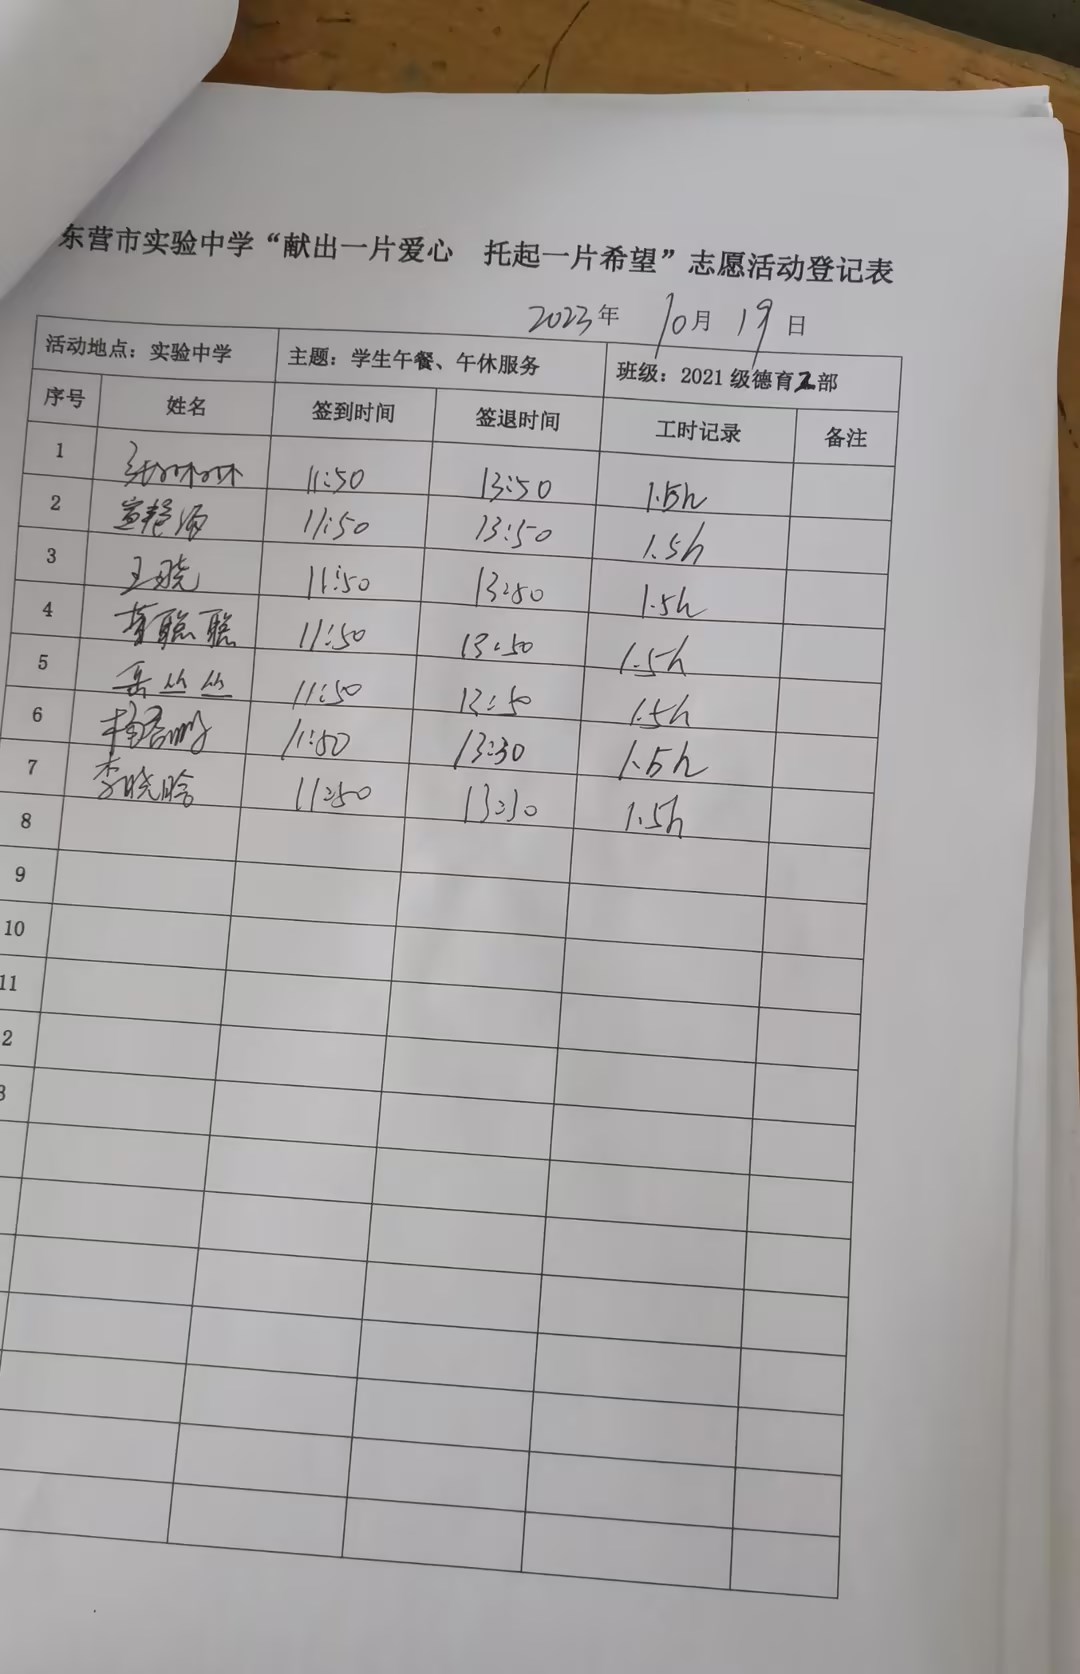 东营市实验中学“献出一片爱心 托起一片希望”志愿活动登记表
2023年 10月 19日
活动地点：实验中学 主题：学生午餐、午休服务 班级：2021级德育2部
序号 姓名 签到时间 签退时间 工时记录 备注
1 11:50 13:50 1.5h
2 11:50 13:50 1.5h
3 王晓 11:50 13:50 1.5h
4 董聪聪 11:50 13:50 1.5h
5 岳丛丛 11:50 13:50 1.5h
6 11:50 13:30 1.5h
7 李晓晗 11:50 13:30 1.5h
8
9
10
11
2
3